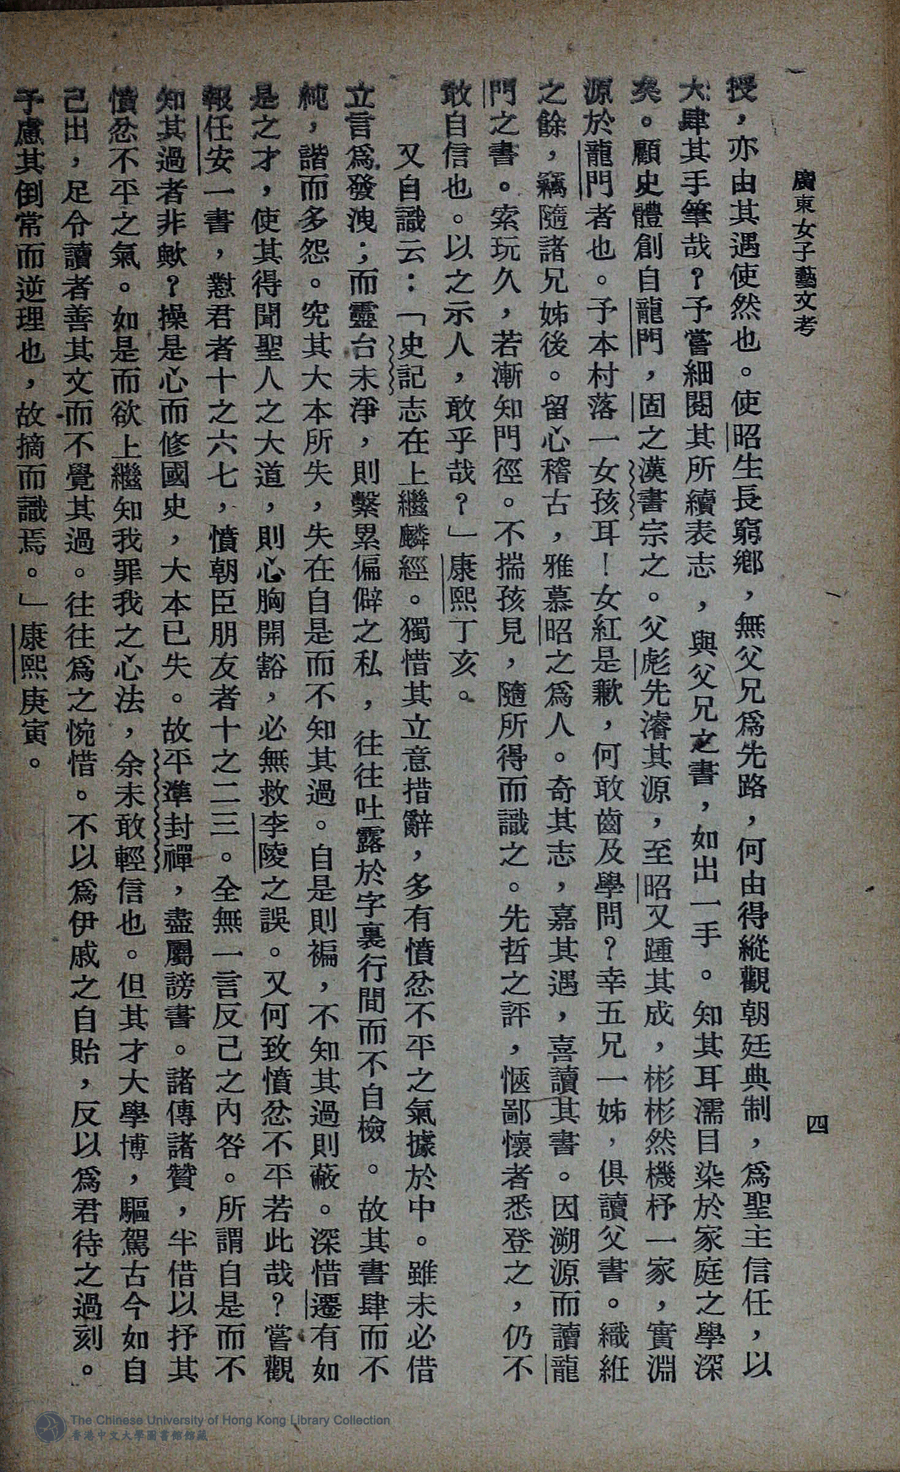 廣東女子藝文考
四
授，亦由其遇使然也。使昭生長窮鄉，無父兄爲先路，何由得縱觀朝廷典制，爲聖主信任，以
大肆其手筆哉？予嘗細閱其所續表志，與父兄之書，如出一手。知其耳濡目染於家庭之學深
矣。顧史體創自龍門，固之漢書宗之。父彪先濬其源，至昭又踵其成，彬彬然機杼一家，實淵
源於龍門者也。子本村落一女孩耳！女紅是歉，何敢齒及學問？幸五兄一姊，俱讀父書。織紝
之餘，竊隨諸兄姊後。留心稽古，雅慕昭之爲人。奇其志，嘉其遇，喜讀其書。因溯源而讀龍
門之書。索玩久，若漸知門徑。不揣孩見，隨所得而識之。先哲之評，愜鄙懷者悉登之，仍不
敢自信也。以之示人，敢乎哉？」康熙丁亥。
又自識云：「史記志在上繼麟經。獨惜其立意措辭，多有憤忿不平之氣據於中。雖未必借
立言爲發洩；而靈台未淨，則繫累偏僻之私，往往吐露於字裏行間而不自檢。故其書肆而不
純，諧而多怨。究其大本所失，失在自是而不知其過。自是則褊，不知其過則蔽。深惜遷有如
是之才，使其得聞聖人之大道，則心胸開豁，必無救李陵之誤。又何致憤忿不平若此哉？嘗觀
報任安一書，懟君者十之六七，憤朝臣朋友者十之二三。全無一言反己之內咎。所謂自是而不
知其過者非歟？操是心而修國史，大本已失。故平準封禪，盡屬謗書。諸傳諸贊，半借以抒其
憤忿不平之氣。如是而欲上繼知我罪我之心法，余未敢輕信也。但其才大學博，驅駕古今如自
己出，足令讀者善其文而不覺其過。往往爲之惋惜。不以爲伊戚之自貽，反以爲君待之過刻。
予慮其倒常而逆理也，故摘而識焉。」康熙庚寅。
The Chinese University of Hong Kong Library Collection
香港中文大學圖書館館藏